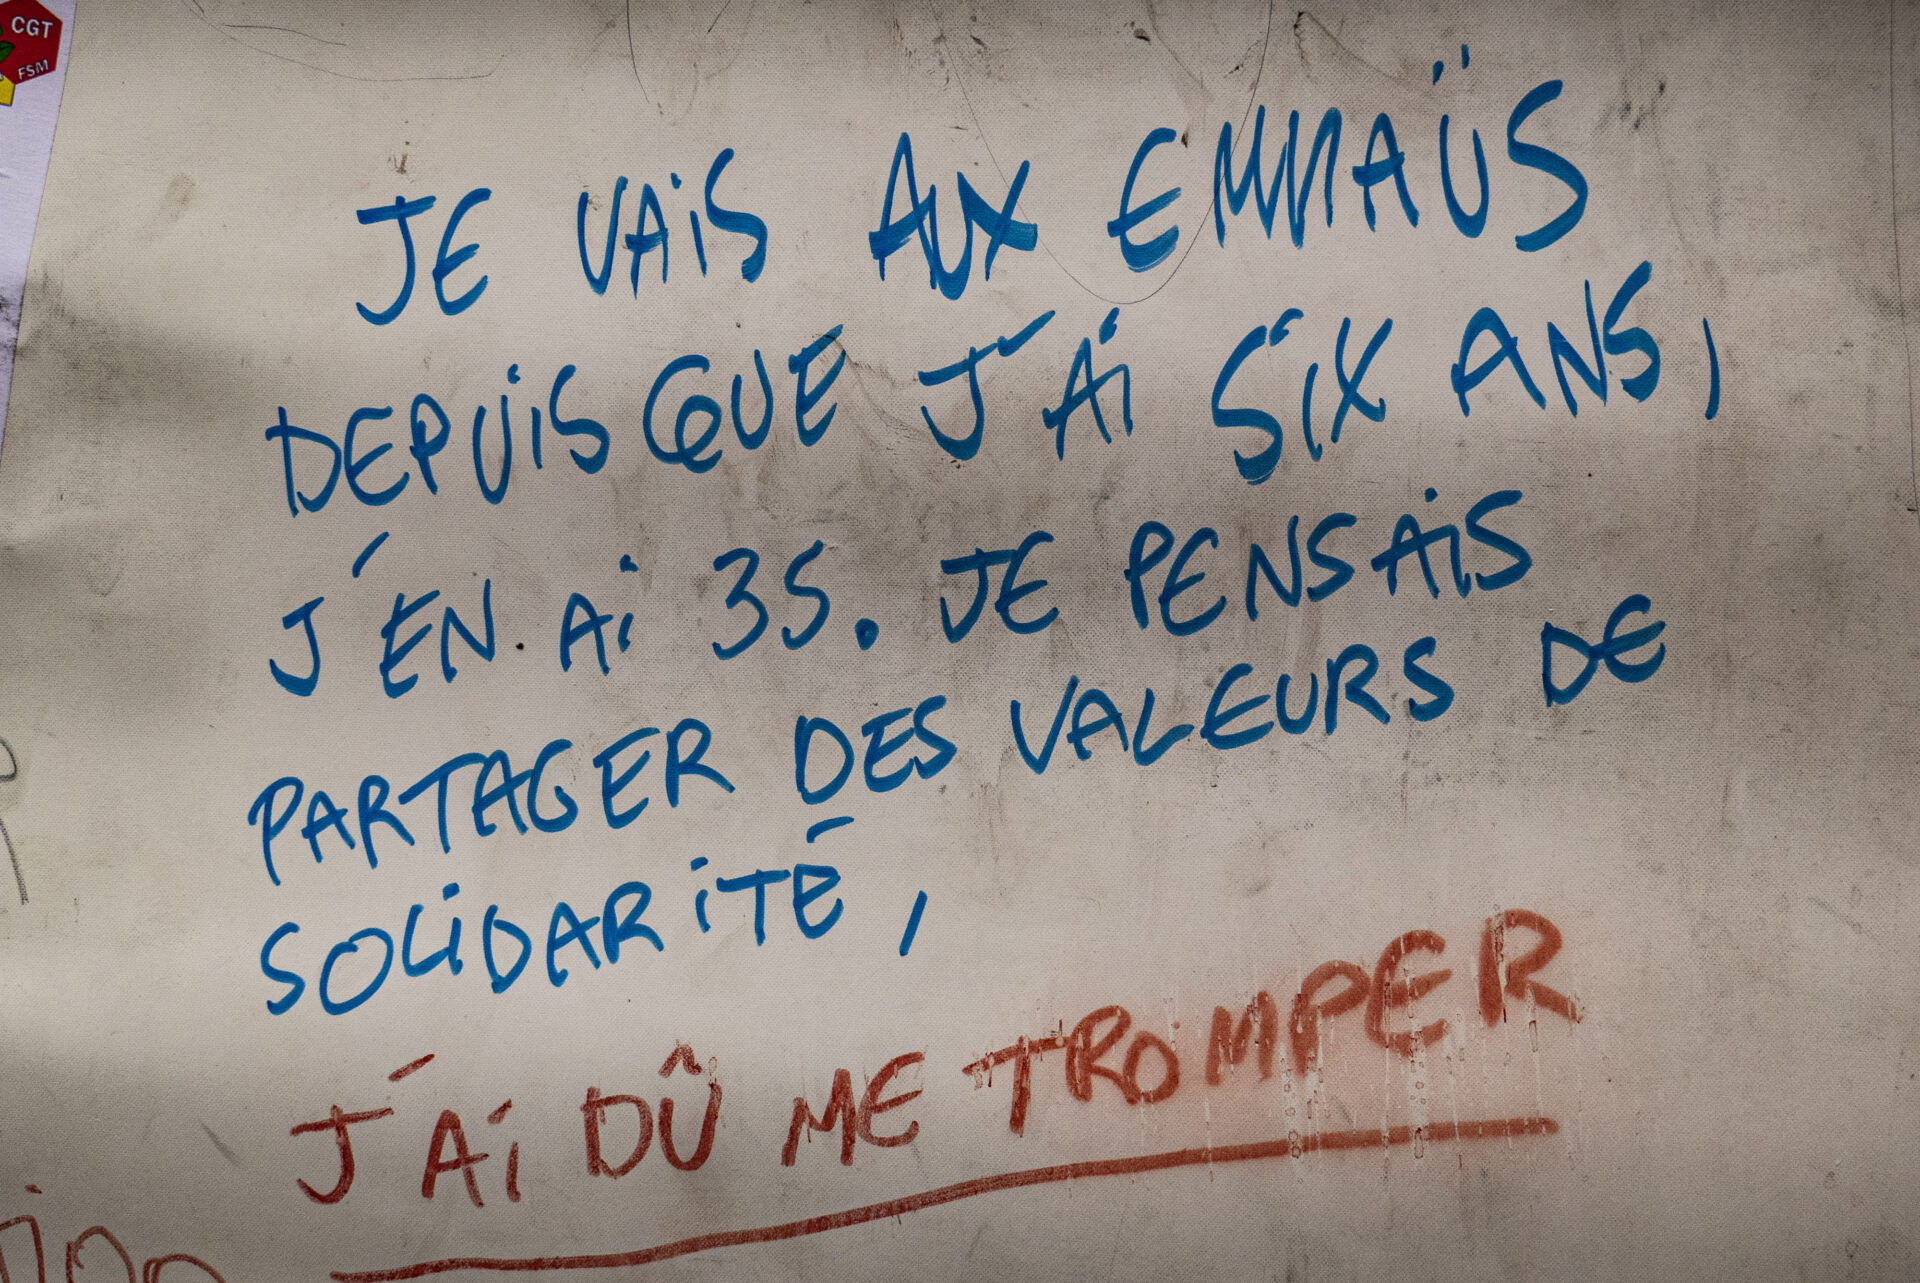 CGT
FSM
JE VAiS AUX EMMAÜS
DEPUiS QUE J'Ai SiX ANS,
J'EN Ai 35. JE PENSAiS
PARTAGER DES VALEURS DE
SOLiDARiTÉ,
J'Ai DÛ ME TROMPER